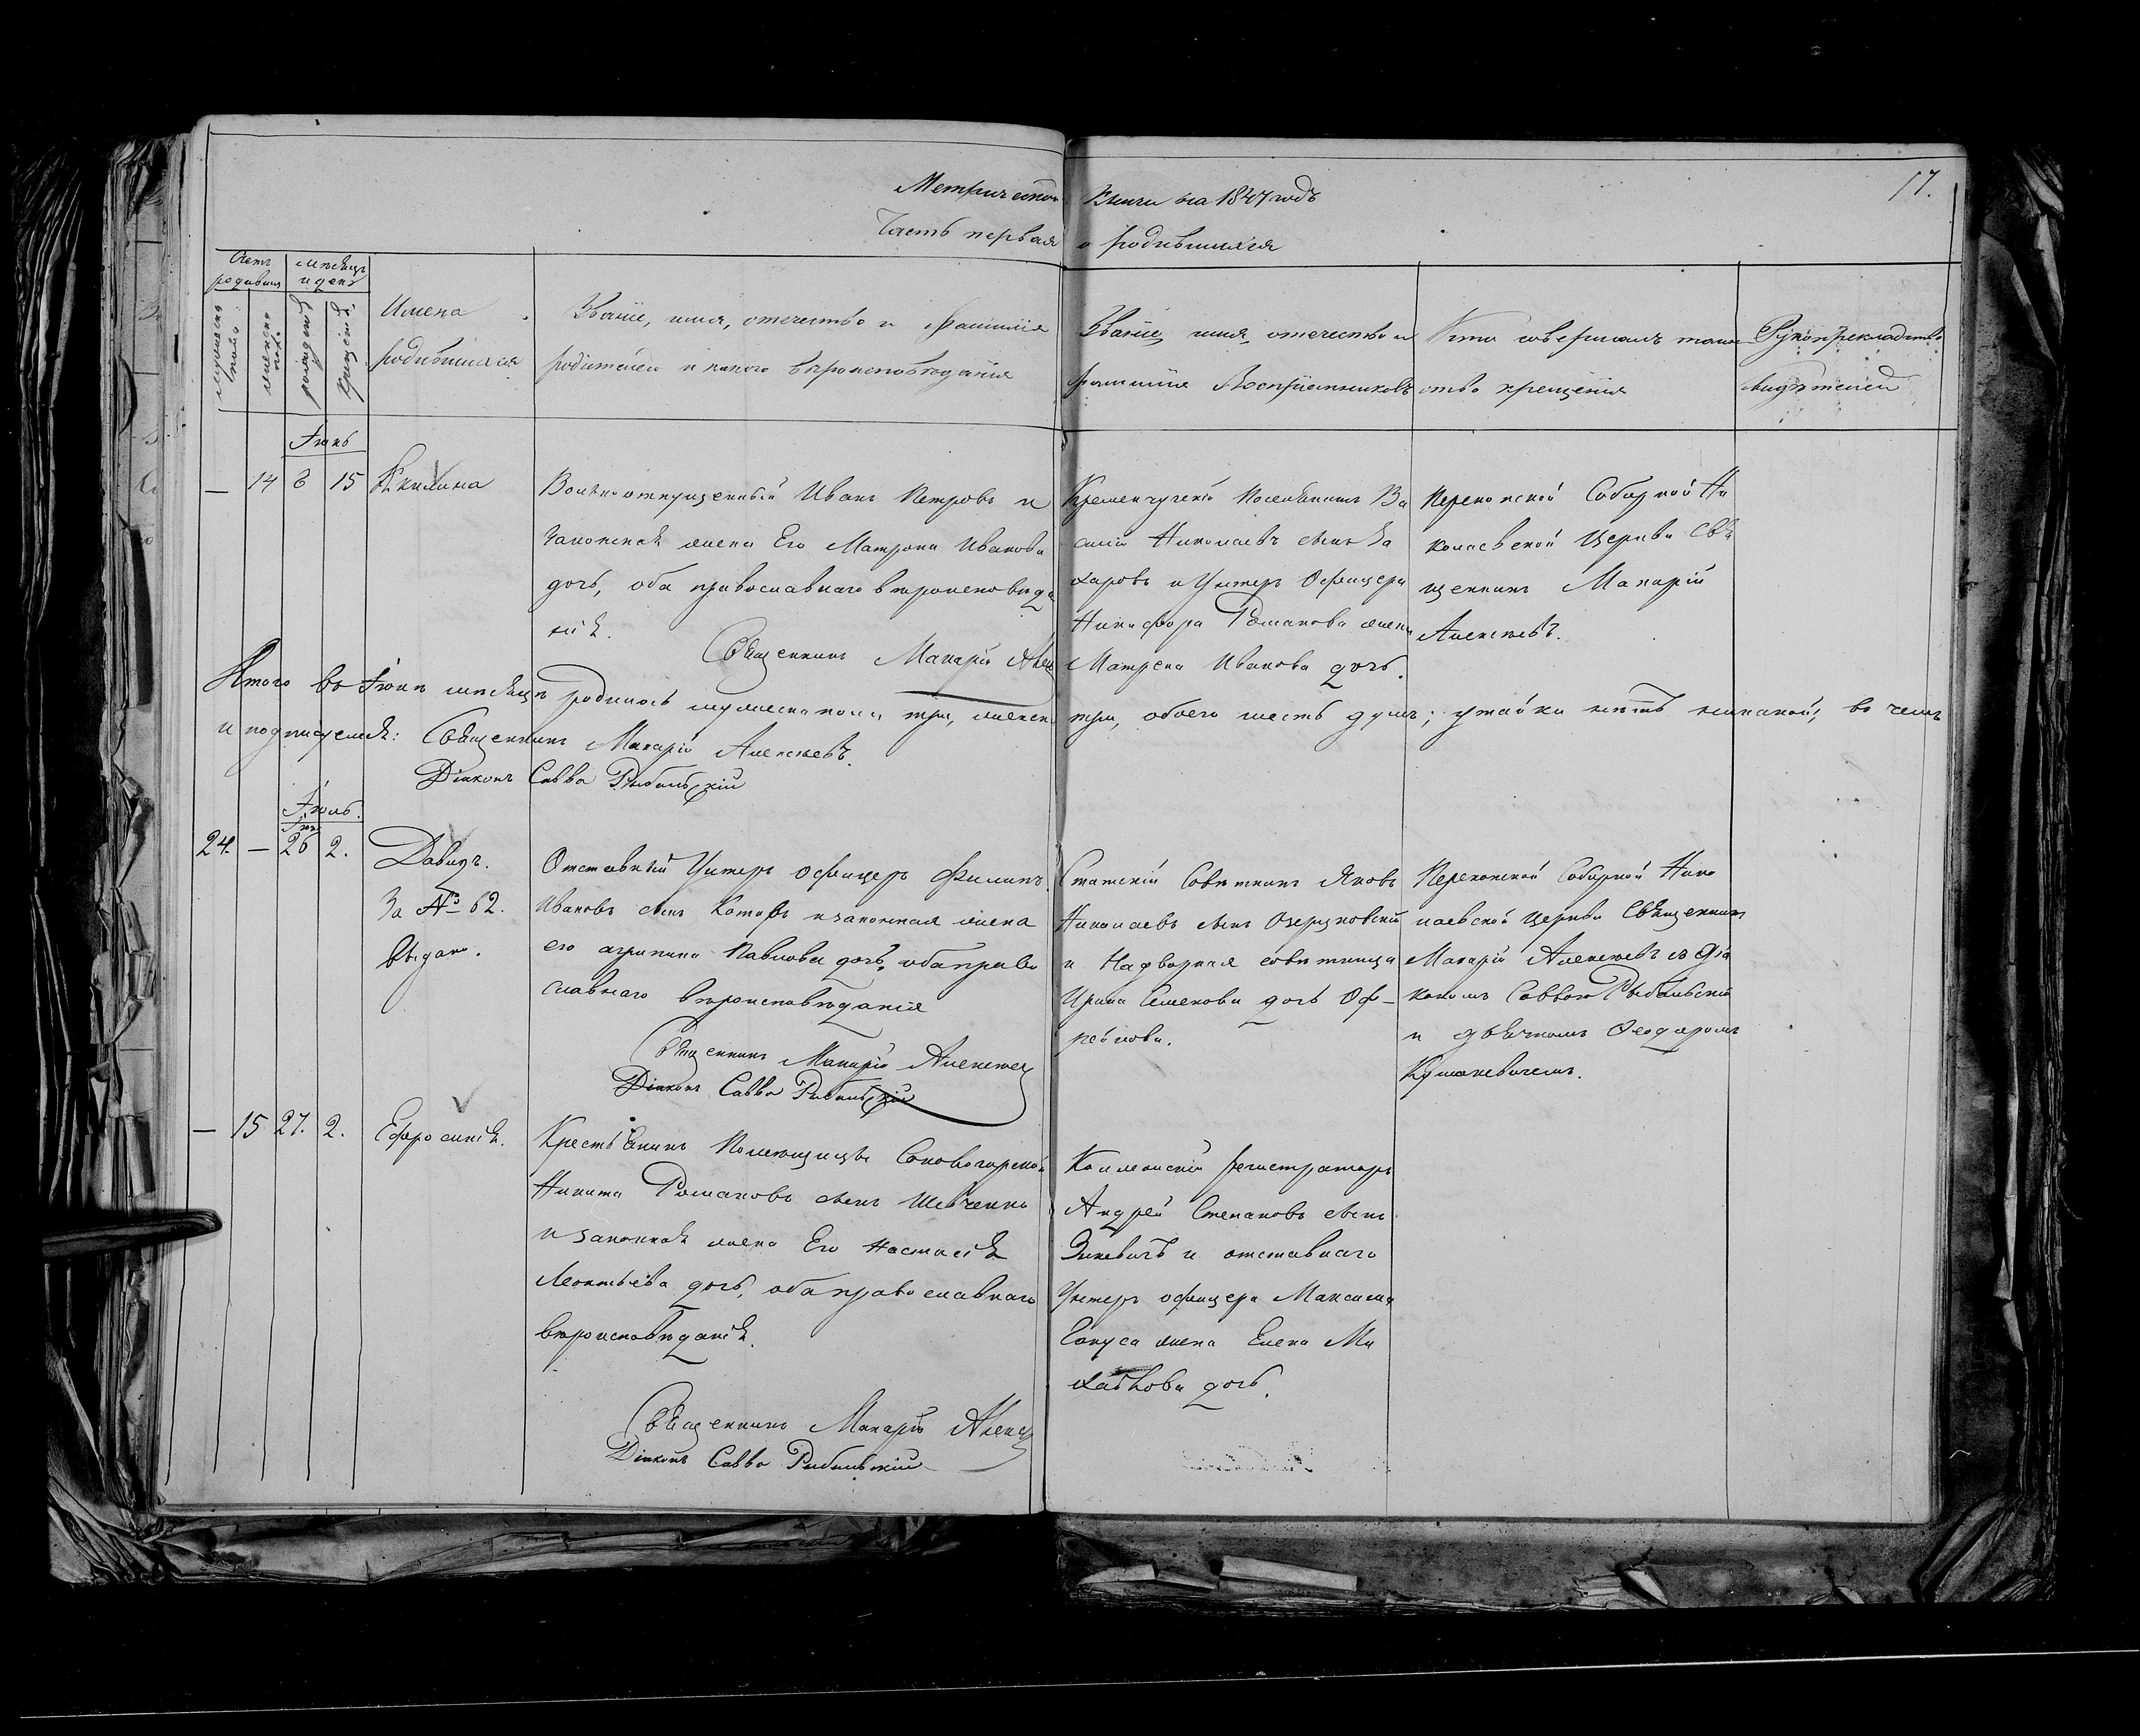 17.
Метрической Книги на 1847 годъ
Часть первая о родившихся
Счетъ родивших
мѣсяцъ и день
мужеска пола
женска пола
рожденія
крещенія
Имена родившихся
Званіе, имя, отечество и фамилія
родителей и какого вѣроисповѣданія
Званіе, имя, отечество и
фамилія Воспріемниковъ
Кто совершалъ таин-
ство крещенія
Рукоприкладство
свидѣтелей
Іюнь
— 14 8 15 Акилина
Вольноотпущенный Иванъ Петровъ и
законная жена Его Матрона Иванова
дочь, оба православнаго вѣроисповѣда
нія.
Священникъ Макарій
Кременчугскій Поселянинъ Ва
силій Николаевъ сынъ За
харовъ и Унтеръ Офицера
Никифора Романова жена
Матрена Иванова дочь.
Перекопской Соборной Ни
колаевской Церкви Свя
щенникъ Макарій
Алексѣевъ.
Итого въ Іюнѣ мѣсяцѣ родилось мужеска пола три, женска три, обоего шесть душъ; утайки нѣтъ никакой; въ чемъ
и подписуемся: Священникъ Макарій Алексѣевъ.
Діаконъ Савва Рыбальскій
Іюль.
Іюн
24. — 26 2. Давидъ.
За № 62.
выдано.
Отставный Унтеръ офицеръ Филипъ
Ивановъ сынъ и законная жена
его агрипина Павлова дочь, оба право
славнаго вѣроисповѣданія
Священникъ Макарій Алексѣев
Діаконъ Савва Рыбальскій
Статскій Совѣтникъ Яковъ
Николаевъ сынъ Озерецковскій
и Надворная совѣтница
Ирина Семенова дочь
Перекопской Соборной Нико
лаевской Церкви Священникъ
Макарій Алексѣевъ съ Діа
кономъ Саввою Рыбальскимъ
и дьячкомъ Ѳеодоромъ
— 15 27. 2. Ефросинія.
Крестьянинъ Помѣщицы
Никита Романовъ сынъ Шевченко
и законная жена Его Настасія
Леонтьева дочь, оба православнаго
вѣроисповѣданія.
Священникъ Макарій
Діаконъ Савва Рыбальскій
Коллежскій регистраторъ
Андрей Степановъ сынъ
и отставнаго
Унтеръ офицера Максима
жена Елена Ми
хайлова дочь.